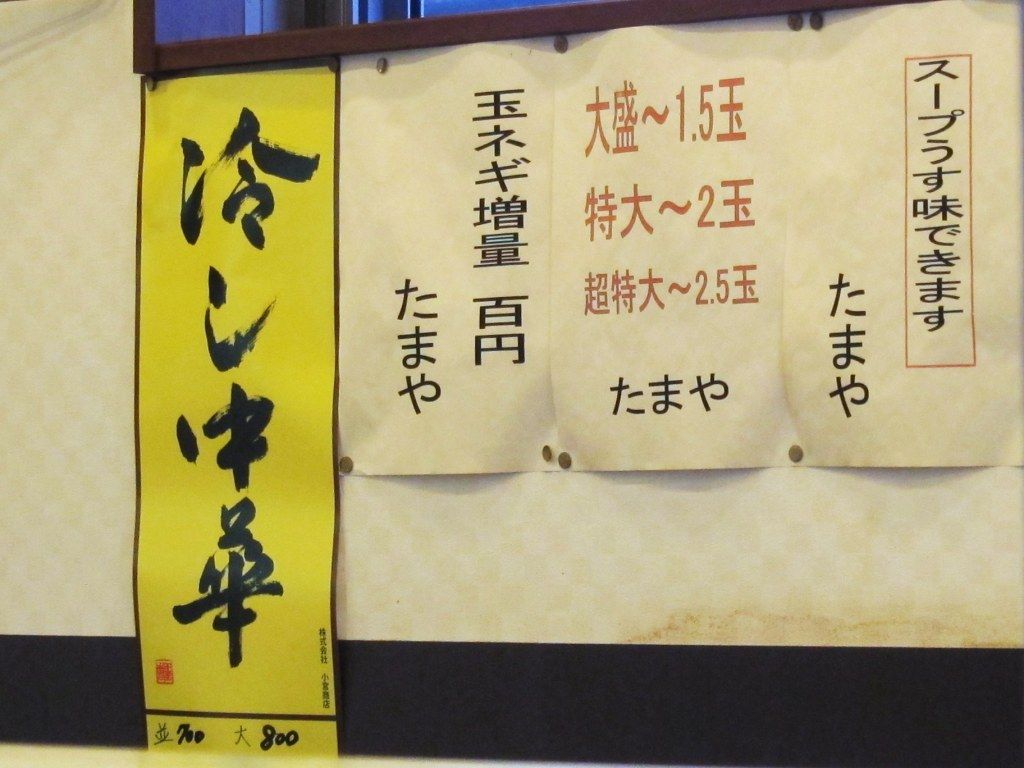 スープうす味できます
たまや
大盛～1.5玉
特大～2玉
超特大～2.5玉
たまや
玉ネギ増量 百円
たまや
冷し中華
株式会社 小宮商店
並700 大800